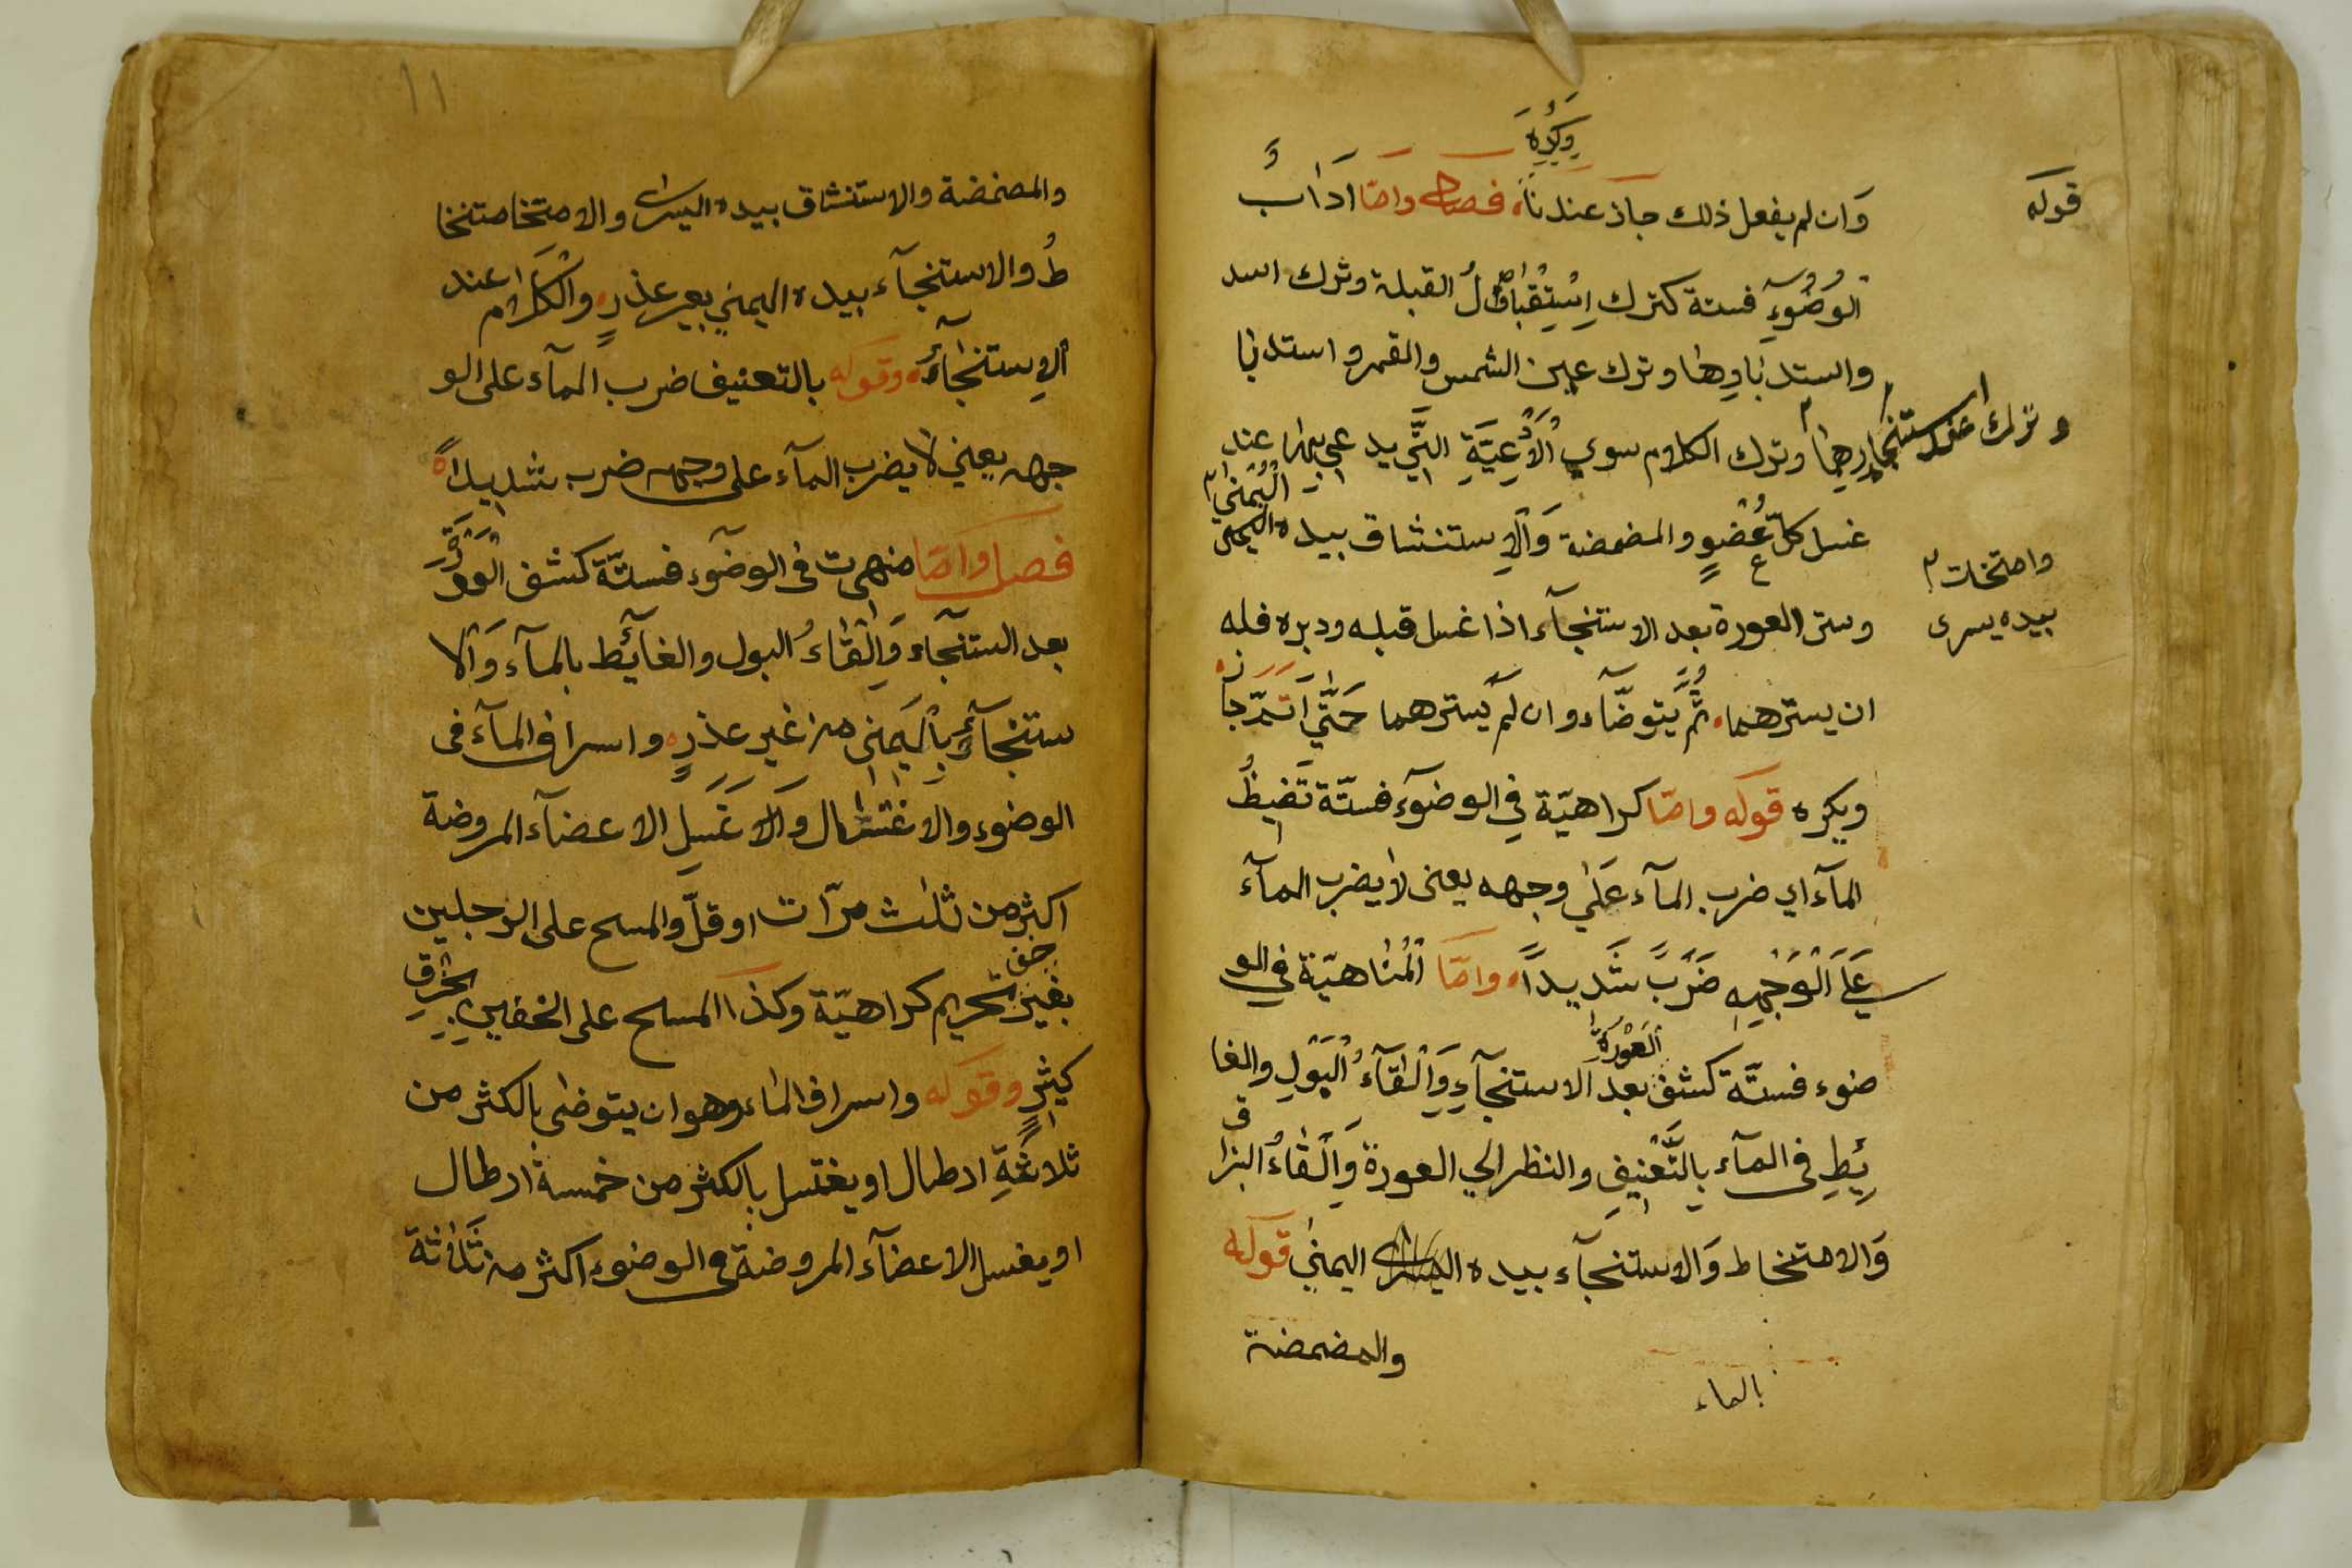 ويكره
قوله
وان لم يفعل ذلك جاز عندنا فصل واما اداب
الوضوء فستة كترك استقبال القبلة وترك اسد
واستدبارها وترك عين الشمس والقمر واستدبا
وترك الكلام سوى الادعية التي يدعى بها عند
اليمنى
غسل كل عضو والمضمضة والاستنشاق بيده اليمنى
وامتخات
بيده يسرى
وستر العورة بعد الاستنجآء اذا غسل قبله ودبره فله
ان يسترهما ثم يتوضآء وان لم يسترهما حتى
ويكره قوله واما كراهية في الوضوء فستة
المآء اي ضرب المآء على وجهه يعنى لا يضرب المآء
على الوجه ضرب شديدا واما المناهية في الو
العورة
ضوء فستة كشف بعد الاستنجآء والقآء البول والغا
ئط في المآء بالتعنيف والنظر الي العورة والقاء البزا
ق
والامتخاط والاستنجآء بيده اليمنى قوله
والمضمضة
بالماء
١١
والمضمضة والاستنشاق بيده اليسرى والامتخا متخا
ط والاستنجآء بيده اليمني بغير عذر والكلام عند
الاستنجآء وقوله بالتعنيف ضرب المآء على الو
جهه يعني لا يضرب المآء على وجهه ضرب شديدا
فصل واما منهيت فى الوضوء فستة كشف العورة
بعد الستنجآء والقاء البول والغائط بالمآء والا
ستنجآء باليمنى من غير عذر واسراف المآء فى
الوضوء والاغتسال والا غسل الاعضآء المروضة
اكثر من ثلث مرات او قل والمسح على الرجلين
خف
بغير تحريم كراهية وكذا المسح على الخفين بخرق
كثير وقوله واسراف الماء وهو ان يتوضى بالكثر من
ثلاثة ارطال او يغتسل بالكثر من خمسة ارطال
او يغسل الاعضآء المروضة في الوضوء اكثر من ثلاثة